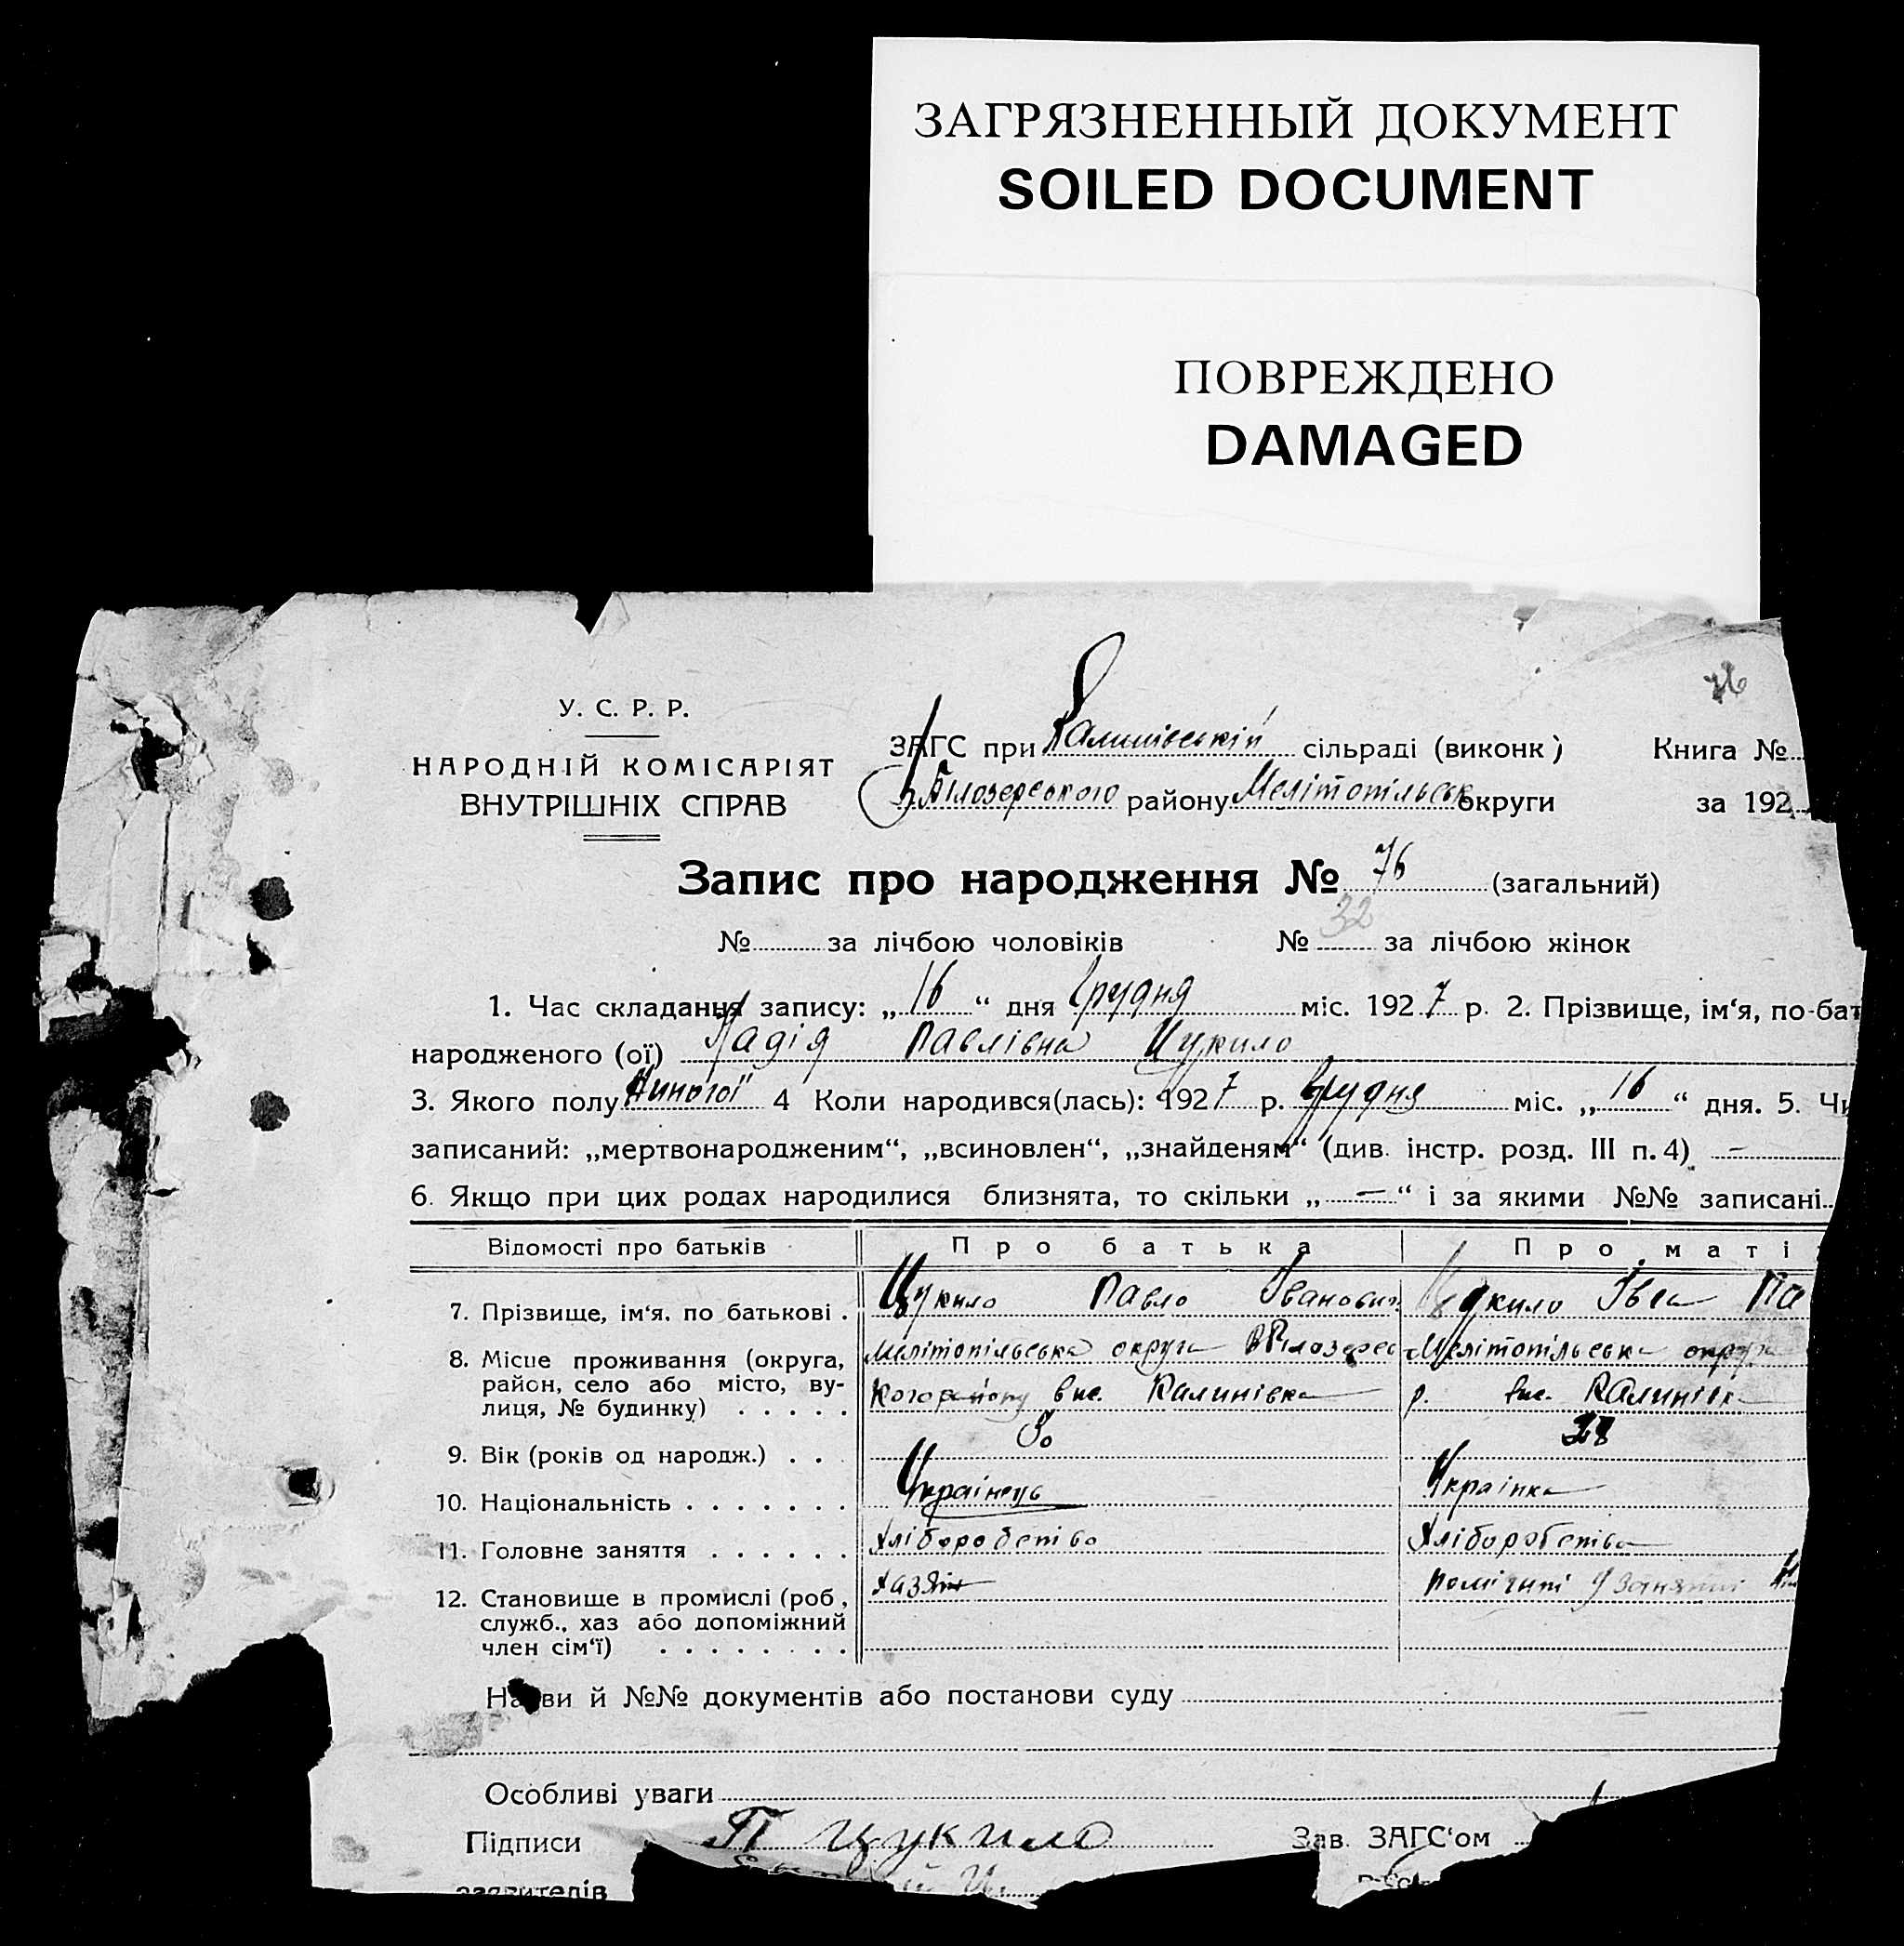 ЗАГРЯЗНЕННЫЙ ДОКУМЕНТ
SOILED DOCUMENT
ПОВРЕЖДЕНО
DAMAGED
76
У. С. Р. Р.
НАРОДНІЙ КОМІСАРІЯТ
ВНУТРІШНІХ СПРАВ
ЗАГС при Калинівській сільраді (виконк) Книга №
В.Білозерського району Мелітопільськ округи за 192
Запис про народження № 76 (загальний)
№ за лічбою чоловіків № 32 за лічбою жінок
1. Час складання запису: „16“ дня Грудня міс. 1927 р. 2. Прізвище, ім‘я, по-бат
народженого (ої) Надія Павлівна Цукило
3. Якого полу 4 Коли народився(лась): 1927 р. Грудня міс. „16“ дня. 5. Чи
записаний: „мертвонародженим“, „всиновлен“, „знайденям“ (див. інстр. розд. III п. 4) —
6. Якщо при цих родах народилися близнята, то скільки „—“ і за якими №№ записані
Відомості про батьків Про батька Про маті
7. Прізвище, ім‘я. по батькові . Цукило Павло Іванович Цукило Па
8. Місце проживання (округа, район, село або місто, вулиця, № будинку) Мелітопільська округа ВБілозерс Мелітопільська округа
кого району вис. Калинівка р. вис. Калинівка
9. Вік (років од народж.) 30 28
10. Національність Українець Українка
11. Головне заняття Хліборобство Хліборобство
12. Становище в промислі (роб, служб., хаз або допоміжний член сім‘ї) хазяїн
Назви й №№ документів або постанови суду
Особливі уваги
Підписи П Цукило Зав. ЗАГС‘ом
заявителів